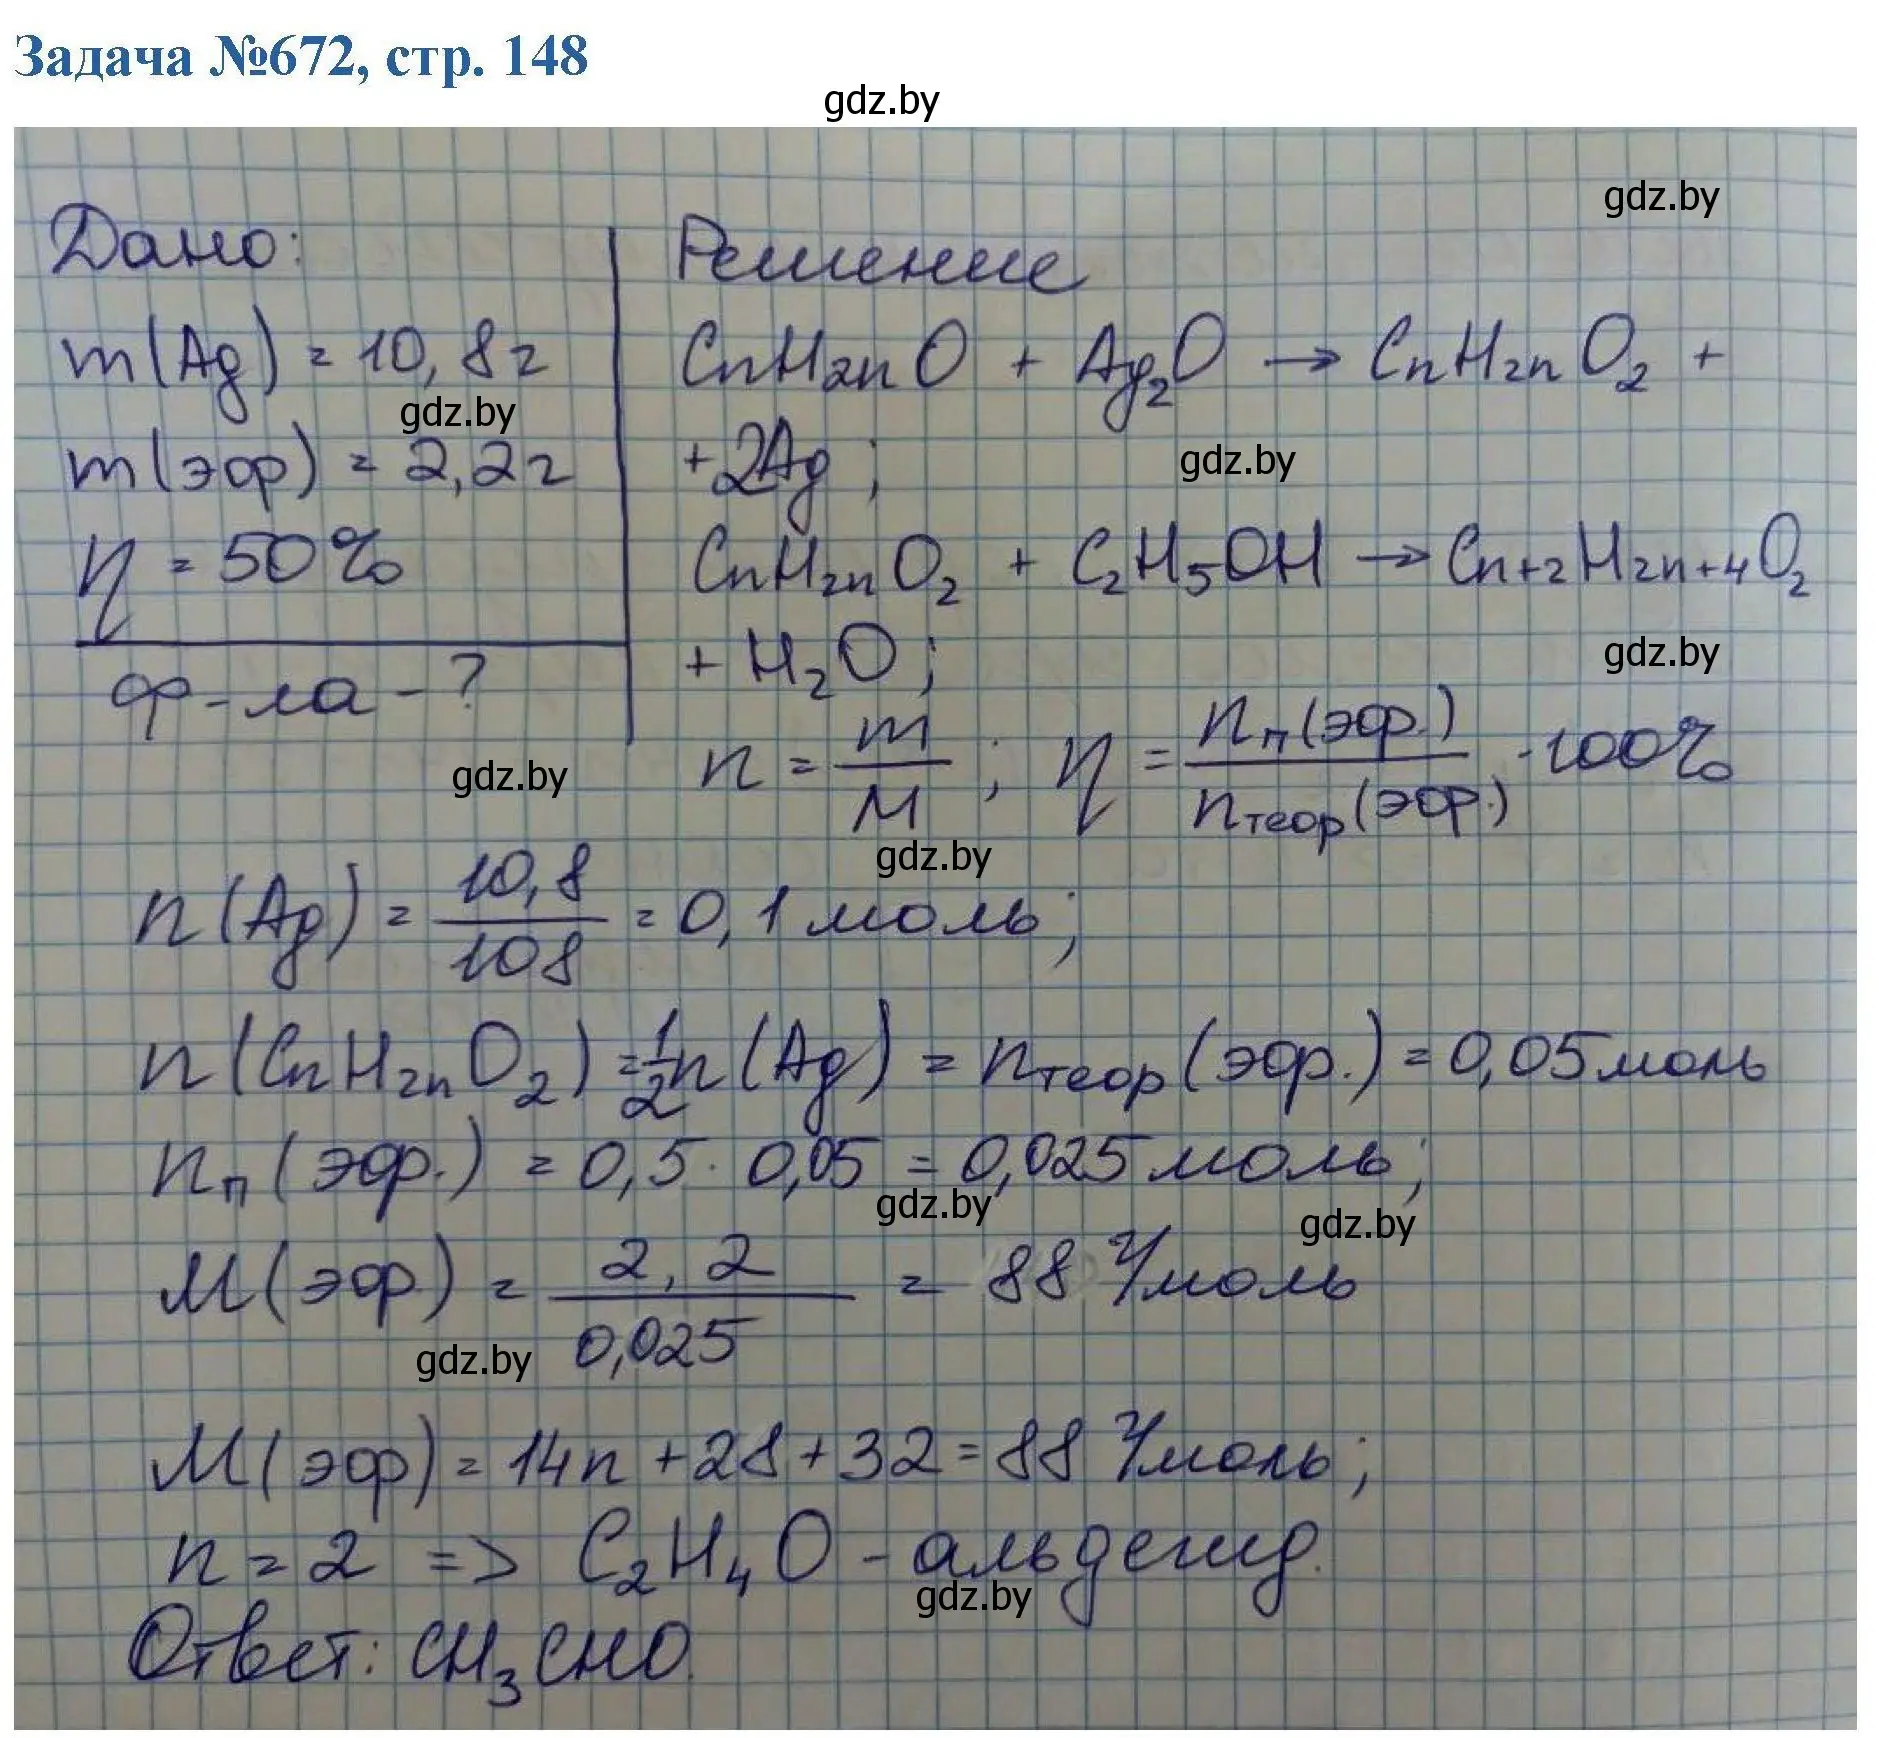 Задача №672, стр. 148
gdz.by
gdz.by
Дано:
m(Ag) = 10,8г
gdz.by
m(эфр) = 2,2г
η = 50%
ф-ла - ?
gdz.by
Решение
CnH2nO + Ag2O → CnH2nO2 +
+2Ag;
gdz.by
CnH2nO2 + C2H5OH → Cn+2H2n+4O2
+ H2O;
gdz.by
n = m/M; η = nп(эфр.)/nтеор(эфр.) · 100%
gdz.by
n(Ag) = 10,8/108 = 0,1 моль;
n(CnH2nO2) = 1/2 n(Ag) = nтеор(эфр.) = 0,05 моль
nп(эфр.) = 0,5 · 0,05 = 0,025 моль;
gdz.by
gdz.by
M(эфр) = 2,2/0,025 = 88 г/моль
gdz.by
M(эфр) = 14n + 28 + 32 = 88 г/моль;
n = 2 => C2H4O - альдегид.
gdz.by
Ответ: CH3CHO.